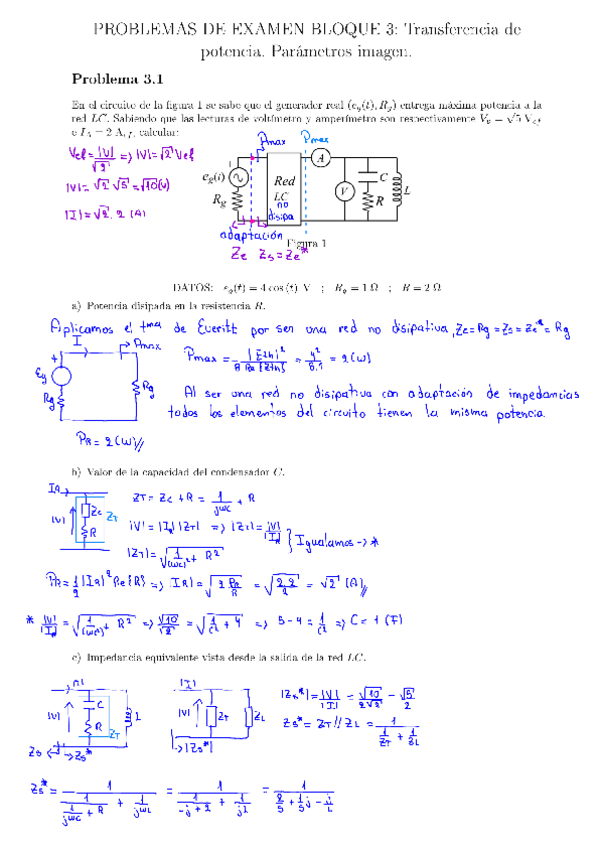 PROBLEMAS DE EXAMEN BLOQUE 3: Transferencia de
potencia. Parámetros imagen.
Problema 3.1
En el circuito de la figura 1 se sabe que el generador real (e_g(t), R_g) entrega máxima potencia a la
red LC. Sabiendo que las lecturas de voltímetro y amperímetro son respectivamente V_ef = √5 V_ef
e I_A = 2 A_ef, calcular:
Vef = |V|/√2 => |V| = √2 Vef
|V| = √2 √5 = √10 (V)
|I| = √2 · 2 (A)
Pmax Pmax
e_g(t)
R_g
Red
LC
no
disipa
A
V
C
R
L
adaptación
Ze Zs = Ze*
Figura 1
DATOS: e_g(t) = 4 cos (t) V ; R_g = 1 Ω ; R = 2 Ω
a) Potencia disipada en la resistencia R.
Aplicamos el tma de Everitt por ser una red no disipativa, Ze = Rg = Zs = Ze* = Rg
I Pmax
Eg
Rg
Rg
Pmax = |Eth|²/8 Re{Zth} = 4²/8·1 = 2 (W)
Al ser una red no disipativa con adaptación de impedancias
todos los elementos del circuito tienen la misma potencia.
PR = 2 (W)//
b) Valor de la capacidad del condensador C.
IR
|V|
Zc
R
ZT
ZT = Zc + R = 1/jωC + R
|V| = |IR| |ZT| => |ZT| = |V|/|IR|
|ZT| = √(1/(ωC)² + R²)
Igualamos -> *
PR = 1/2 |IR|² Re{R} => |IR| = √(2 PR/R) = √(2·2/2) = √2 (A)//
* |V|/|IR| = √(1/(ωC)² + R²) => √10/√2 = √(1/C² + 4) => 5-4 = 1/C² => C = 1 (F)
c) Impedancia equivalente vista desde la salida de la red LC.
|V|
C
R
ZT
L
Zs
Zs*
|I|
|V|
ZT
ZL
|Zs*|
|Zs*| = |V|/|I| = √10/2√2 = √5/2
Zs* = ZT // ZL = 1/(1/ZT + 1/ZL)
Zs* = 1/(1/(1/jωC + R) + 1/jωL) = 1/(1/(-j + 2) + 1/jL) = 1/(2/5 + 1/5 j - j/L)